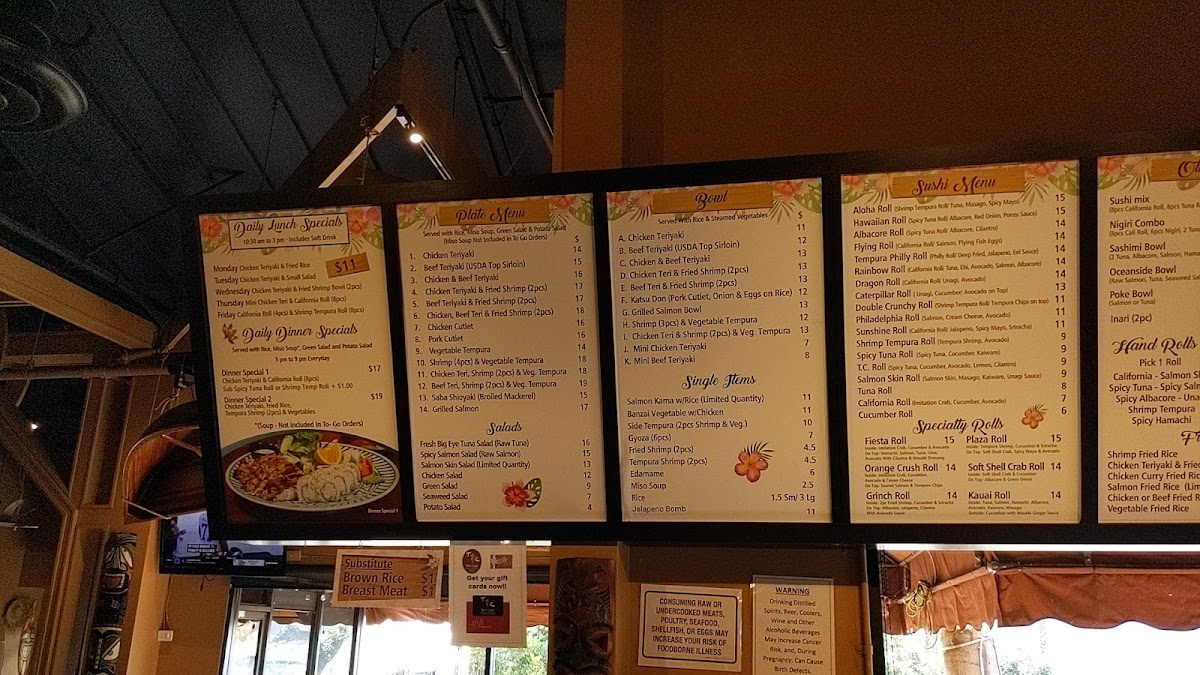 Daily Lunch Specials
10:30 am to 3 pm - Includes Soft Drink
Monday Chicken Teriyaki & Fried Rice
$11
Tuesday Chicken Teriyaki & Small Salad
Wednesday Chicken Teriyaki & Fried Shrimp Bowl (2pcs)
Thursday Mini Chicken Teri & California Roll (8pcs)
Friday California Roll (4pcs) & Shrimp Tempura Roll (8pcs)
Daily Dinner Specials
Served with Rice, Miso Soup*, Green Salad and Potato Salad
3 pm to 9 pm Everyday
Dinner Special 1 $17
Chicken Teriyaki & California Roll (8pcs)
Sub Spicy Tuna Roll or Shrimp Temp Roll + $1.00
Dinner Special 2 $19
Chicken Teriyaki, Fried Rice,
Tempura Shrimp (2pcs) & Vegetables
*(Soup - Not Included In To- Go Orders)
Dinner Special 1
Plate Menu
Served with Rice, Miso Soup, Green Salad & Potato Salad
(Miso Soup Not Included in To Go Orders)
$
1. Chicken Teriyaki 14
2. Beef Teriyaki (USDA Top Sirloin) 15
3. Chicken & Beef Teriyaki 16
4. Chicken Teriyaki & Fried Shrimp (2pcs) 17
5. Beef Teriyaki & Fried Shrimp (2pcs) 17
6. Chicken, Beef Teri & Fried Shrimp (2pcs) 18
7. Chicken Cutlet 16
8. Pork Cutlet 16
9. Vegetable Tempura 14
10. Shrimp (4pcs) & Vegetable Tempura 18
11. Chicken Teri, Shrimp (2pcs) & Veg. Tempura 18
12. Beef Teri, Shrimp (2pcs) & Veg. Tempura 19
13. Saba Shioyaki (Broiled Mackerel) 15
14. Grilled Salmon 17
Salads
Fresh Big Eye Tuna Salad (Raw Tuna) 16
Spicy Salmon Salad (Raw Salmon) 15
Salmon Skin Salad (Limited Quantity) 13
Chicken Salad 12
Green Salad 9
Seaweed Salad 7
Potato Salad 4
Bowl
Served with Rice & Steamed Vegetables $
A. Chicken Teriyaki 11
B. Beef Teriyaki (USDA Top Sirloin) 12
C. Chicken & Beef Teriyaki 13
D. Chicken Teri & Fried Shrimp (2pcs) 13
E. Beef Teri & Fried Shrimp (2pcs) 13
F. Katsu Don (Pork Cutlet, Onion & Eggs on Rice) 12
G. Grilled Salmon Bowl 13
H. Shrimp (3pcs) & Vegetable Tempura 12
I. Chicken Teri & Shrimp (2pcs) & Veg. Tempura 13
J. Mini Chicken Teriyaki 7
K. Mini Beef Teriyaki 8
Single Items
Salmon Kama w/Rice (Limited Quantity) 11
Banzai Vegetable w/Chicken 11
Side Tempura (2pcs Shrimp & Veg.) 10
Gyoza (6pcs) 7
Fried Shrimp (2pcs) 4.5
Tempura Shrimp (2pcs) 4.5
Edamame 6
Miso Soup 2.5
Rice 1.5 Sm/ 3 Lg
Jalapeno Bomb 11
Sushi Menu
Aloha Roll (Shrimp Tempura Roll/ Tuna, Masago, Spicy Mayo) 15
Hawaiian Roll (Spicy Tuna Roll/ Albacore, Red Onion, Ponzu Sauce) 15
Albacore Roll (Spicy Tuna Roll/ Albacore, Cilantro) 14
Flying Roll (California Roll/ Salmon, Flying Fish Eggs) 14
Tempura Philly Roll (Philly Roll/ Deep Fried, Jalapeno, Eel Sauce) 14
Rainbow Roll (California Roll/ Tuna, Ebi, Avocado, Salmon, Albacore) 14
Dragon Roll (California Roll/ Unagi, Avocado) 14
Caterpillar Roll ( Unagi, Cucumber/ Avocado on Top) 13
Double Crunchy Roll (Shrimp Tempura Roll/ Tempura Chips on top) 11
Philadelphia Roll (Salmon, Cream Cheese, Avocado) 9
Sunshine Roll (California Roll/ Jalapeno, Spicy Mayo, Sriracha) 11
Shrimp Tempura Roll (Tempura Shrimp, Avocado) 9
Spicy Tuna Roll (Spicy Tuna, Cucumber, Kaiware) 9
T.C. Roll (Spicy Tuna, Cucumber, Avocado, Lemon, Cilantro) 9
Salmon Skin Roll (Salmon Skin, Masago, Kaiware, Unagi Sauce) 9
Tuna Roll 8
California Roll (Imitation Crab, Cucumber, Avocado) 7
Cucumber Roll 6
Specialty Rolls
Fiesta Roll 15 Plaza Roll 15
Inside: Imitation Crab, Cucumber & Avocado Inside: Tempura Shrimp, Cucumber & Sriracha
On Top: Hamachi, Salmon, Tuna, Lime, On Top: Soft Shell Crab, Spicy Mayo & Avocado
Avocado With Cilantro & Wasabi Dressing
Orange Crush Roll 14 Soft Shell Crab Roll 14
Inside: Imitation Crab, Cucumber, Inside: Soft Shell Crab & Cucumber
Avocado & Cream Cheese On Top: Albacore & Green Onion
On Top: Seared Salmon & Tempura Chips
Grinch Roll 14 Kauai Roll 14
Inside: 2pc Fried Shrimp, Cucumber & Sriracha Inside: Tuna, Salmon, Hamachi, Albacore,
On Top: Albacore, Jalapeno, Cilantro Avocado, Kaiware, Masago
With Avocado Sauce Outside: Cucumber with Wasabi Ginger Sauce
Sushi mix
(8pcs California Roll, 6pcs Tuna R
Nigiri Combo
(8pcs Cali Roll, 6pcs Nigiri, 2 Tuna
Sashimi Bowl
(2 Tuna, Albacore, Salmon, Hama
Oceanside Bowl
(Raw Salmon, Tuna, Seaweed Sa
Poke Bowl
(Salmon or Tuna)
Inari (2pc)
Hand Rolls
Pick 1 Roll
California - Salmon S
Spicy Tuna - Spicy Salm
Spicy Albacore - Una
Shrimp Tempura
Spicy Hamachi
Shrimp Fried Rice
Chicken Teriyaki & Frie
Chicken Curry Fried Ric
Salmon Fried Rice (Lim
Chicken or Beef Fried R
Vegetable Fried Rice
Substitute
Brown Rice $1
Breast Meat $1
Get your gift
cards now!!
CONSUMING RAW OR
UNDERCOOKED MEATS,
POULTRY, SEAFOOD,
SHELLFISH, OR EGGS MAY
INCREASE YOUR RISK OF
FOODBORNE ILLNESS
WARNING
Drinking Distilled
Spirits, Beer, Coolers,
Wine and Other
Alcoholic Beverages
May Increase Cancer
Risk, and, During
Pregnancy, Can Cause
Birth Defects.